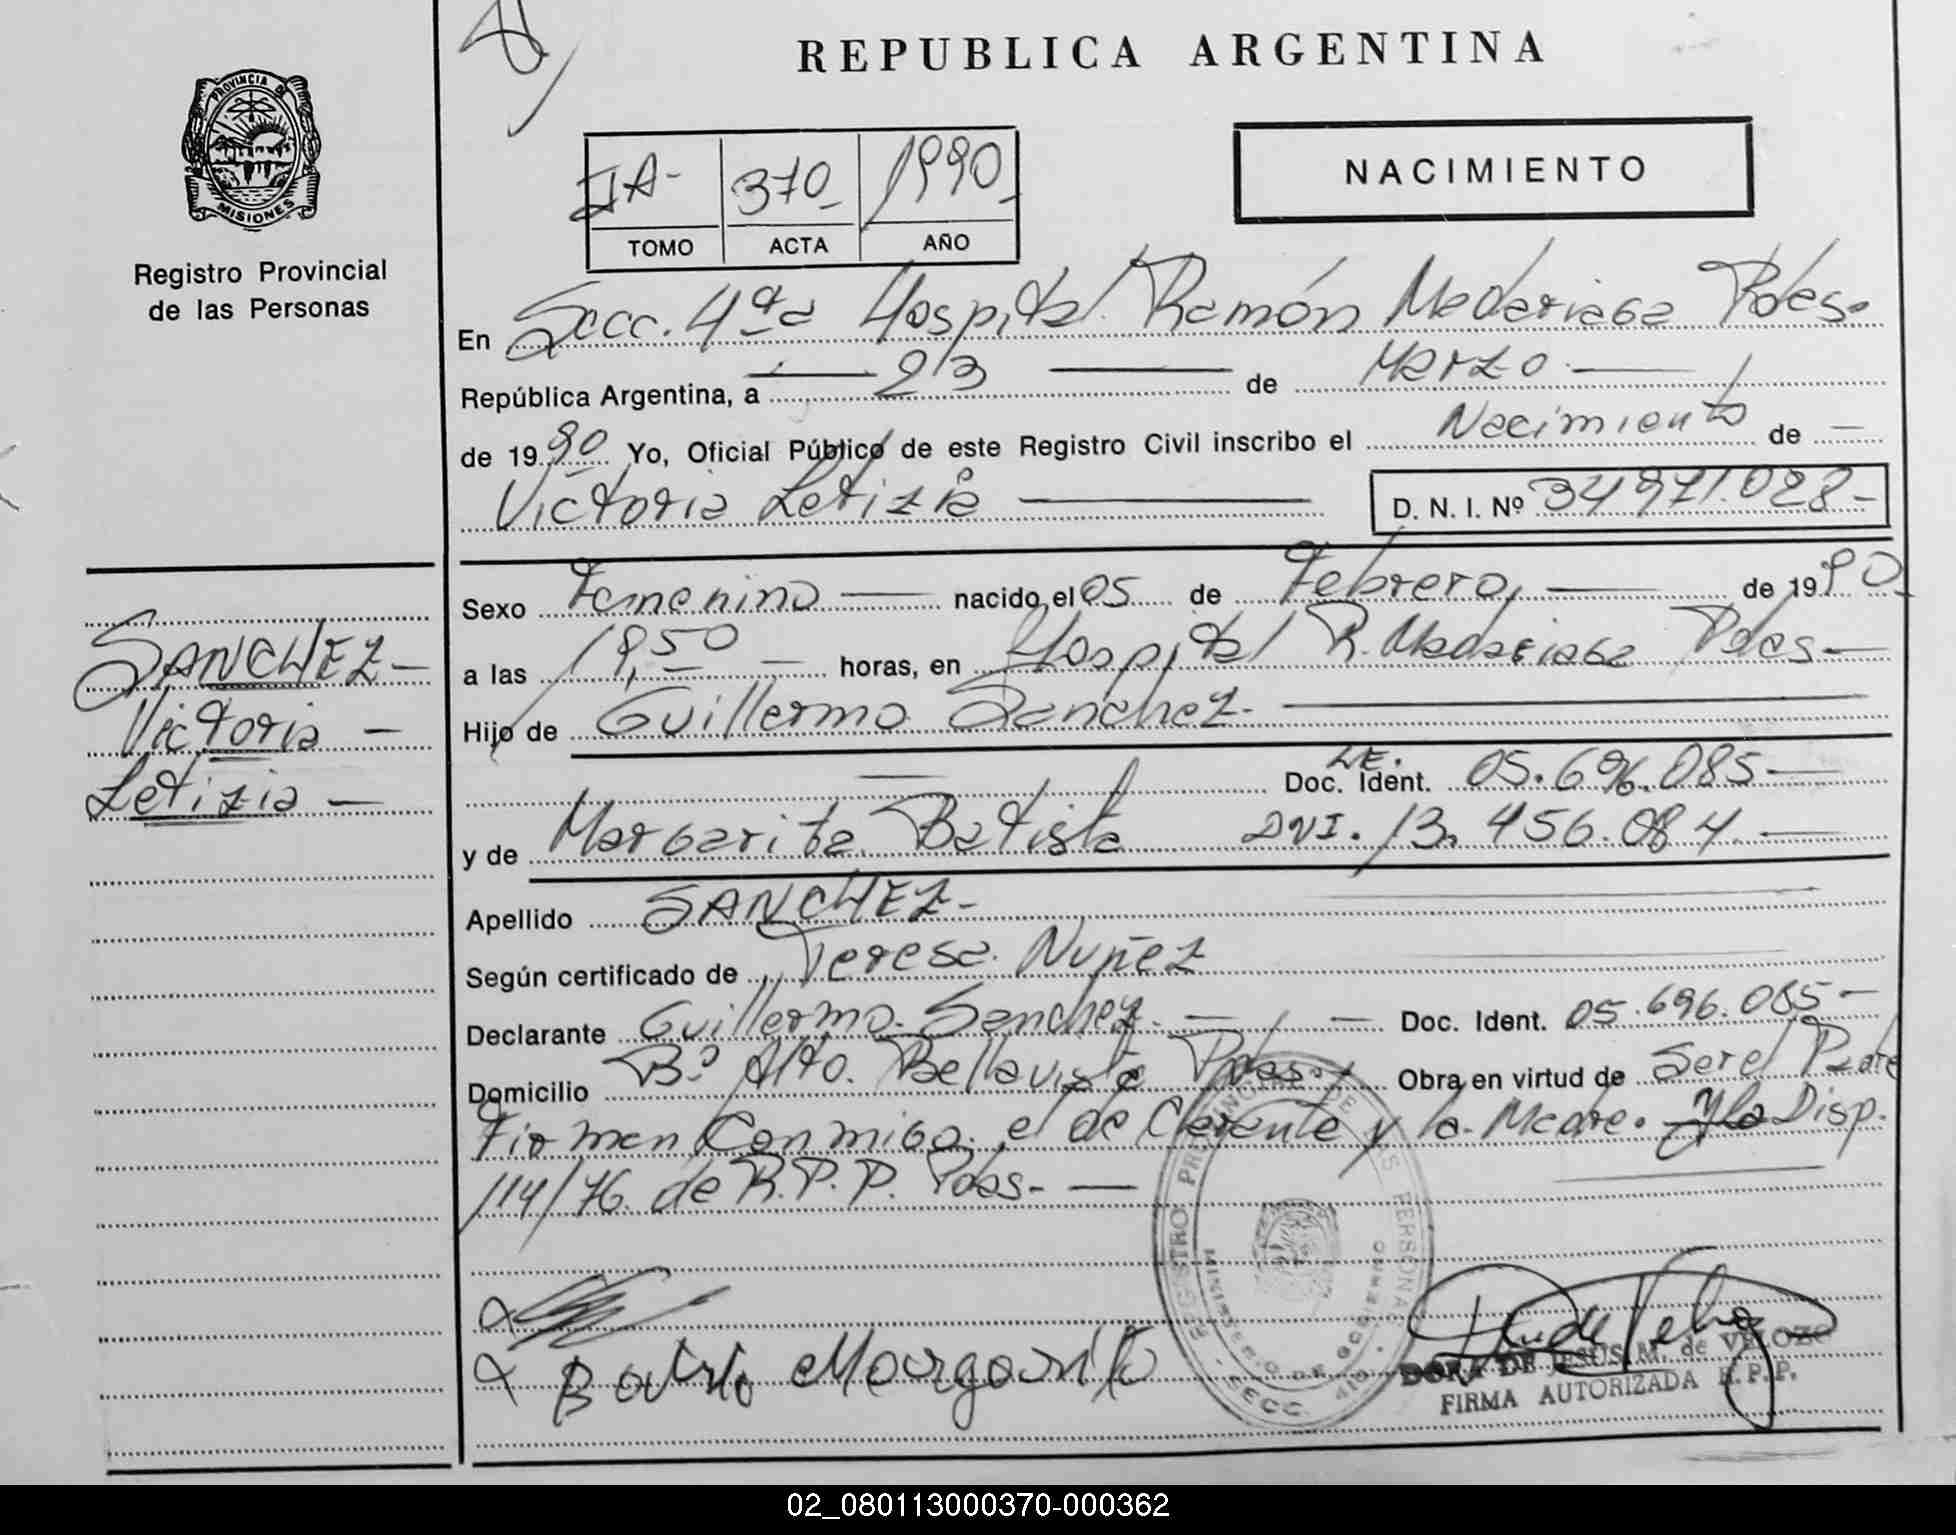 REPUBLICA ARGENTINA
PROVINCIA DE
MISIONES
Registro Provincial
de las Personas
NACIMIENTO
IA- 370- 1990-
TOMO ACTA AÑO
En Secc. 4ta Hospital Ramón Madariaga Pdas.
República Argentina, a 23 de Marzo
de 1990 Yo, Oficial Público de este Registro Civil inscribo el Nacimiento de
Victoria Letizia D. N. I. Nº 34971.028-
SANCHEZ-
Victoria -
Letizia -
Sexo Femenino nacido el 05 de Febrero, de 1990
a las 19,50 horas, en Hospital R. Madariaga Pdas-
Hijo de Guillermo Sanchez-
LE.
Doc. Ident. 05.696.085-
y de Margarita Batista DNI. 13.456.084.-
Apellido SANCHEZ-
Según certificado de Teresa Nuñez
Declarante Guillermo Sanchez- Doc. Ident. 05.696.085-
Domicilio Bº Alto Bellavista Pdas- Obra en virtud de Ser el Padre
Firman Conmigo el declarente y la Madre. y la Disp.
114/76 de R.P.P. Pdas-
REGISTRO PROVINCIAL DE LAS PERSONAS
MINISTERIO DE GOBIERNO
- SECC. 4ta -
Batista Margarita
DORA DE JESUS M. de VELOZO
FIRMA AUTORIZADA R.P.P.
02_080113000370-000362